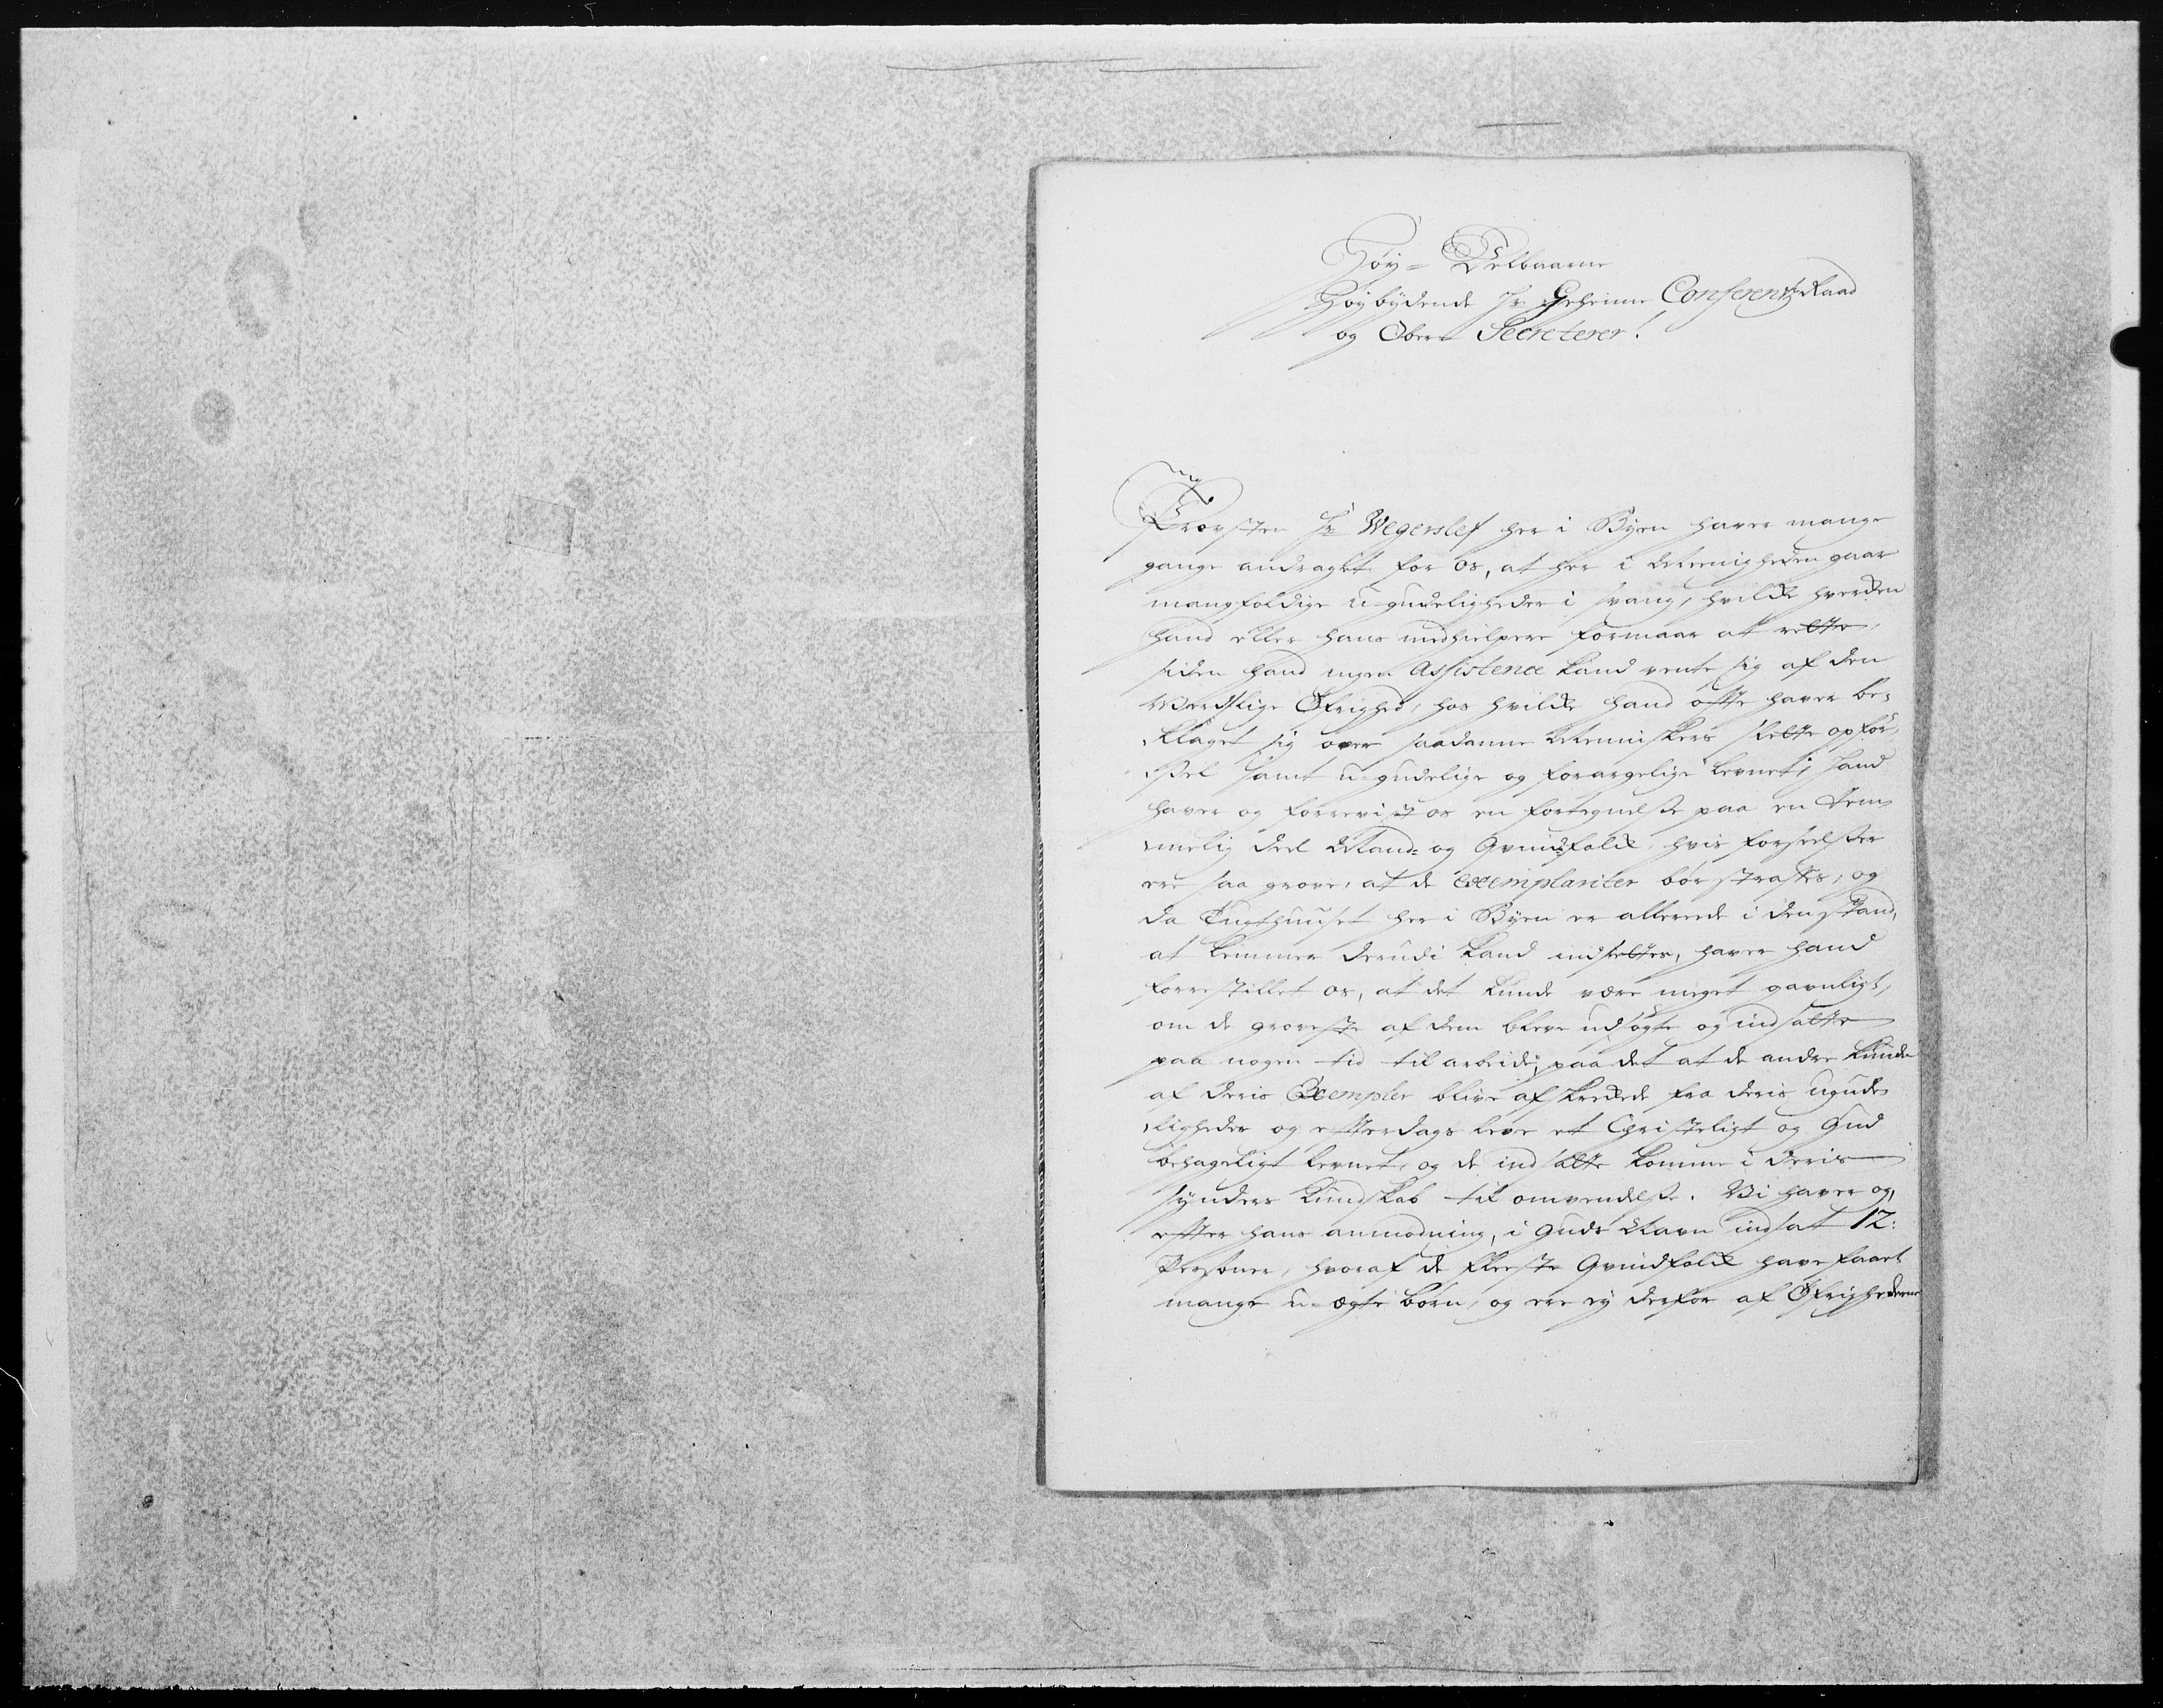 Høy- Velbaarne
Høybydende Hr Geheime ConferentzRaad
og Ober Secreterer!
Provsten Hr Wegersløf her i Byen haver mange
gange andraget for os, at her i Meenigheden gaar
mangfoldige u-gudeligheder i svang, hvilke hverken
hand eller hans medhielpere formaar at rette,
siden hand ingen Assistence kand vente sig af den
Werdslige Øfrighed, hos hvilke hand ofte haver be-
klaget sig over saadanne Menniskers slette opfør-
sel samt u-gudelige og forargelige levnet; hand
haver og forrevist os en fortegnelse paa en tem-
melig deel Mand- og Qvindfolk, hvis forseelser
ere saa grove, at de exemplariter bør straffes, og
da Tugthuuset her i Byen er allerede i den stand,
at Lemmer derudi kand indsettes, haver hand
forrestillet os, at det kunde være meget gavnligt,
om de groveste af dem bleve udsøgte og indsatte
paa nogen tid til arbeide, paa det at de andre kunde
af deris Exempler blive afskrekkede fra deris ugude-
ligheder og efterdags leve et Christeligt og Gud
behageligt levnet, og de indsatte komme i deris
synders kundskab til omvendelse. Vi haver og,
efter hans anmodning, i Guds Navn indsat 12:
Personer, hvoraf de fleeste Qvindfolk have faaet
mange u-ægte børn, og ere ey derfor af Øfrighederne